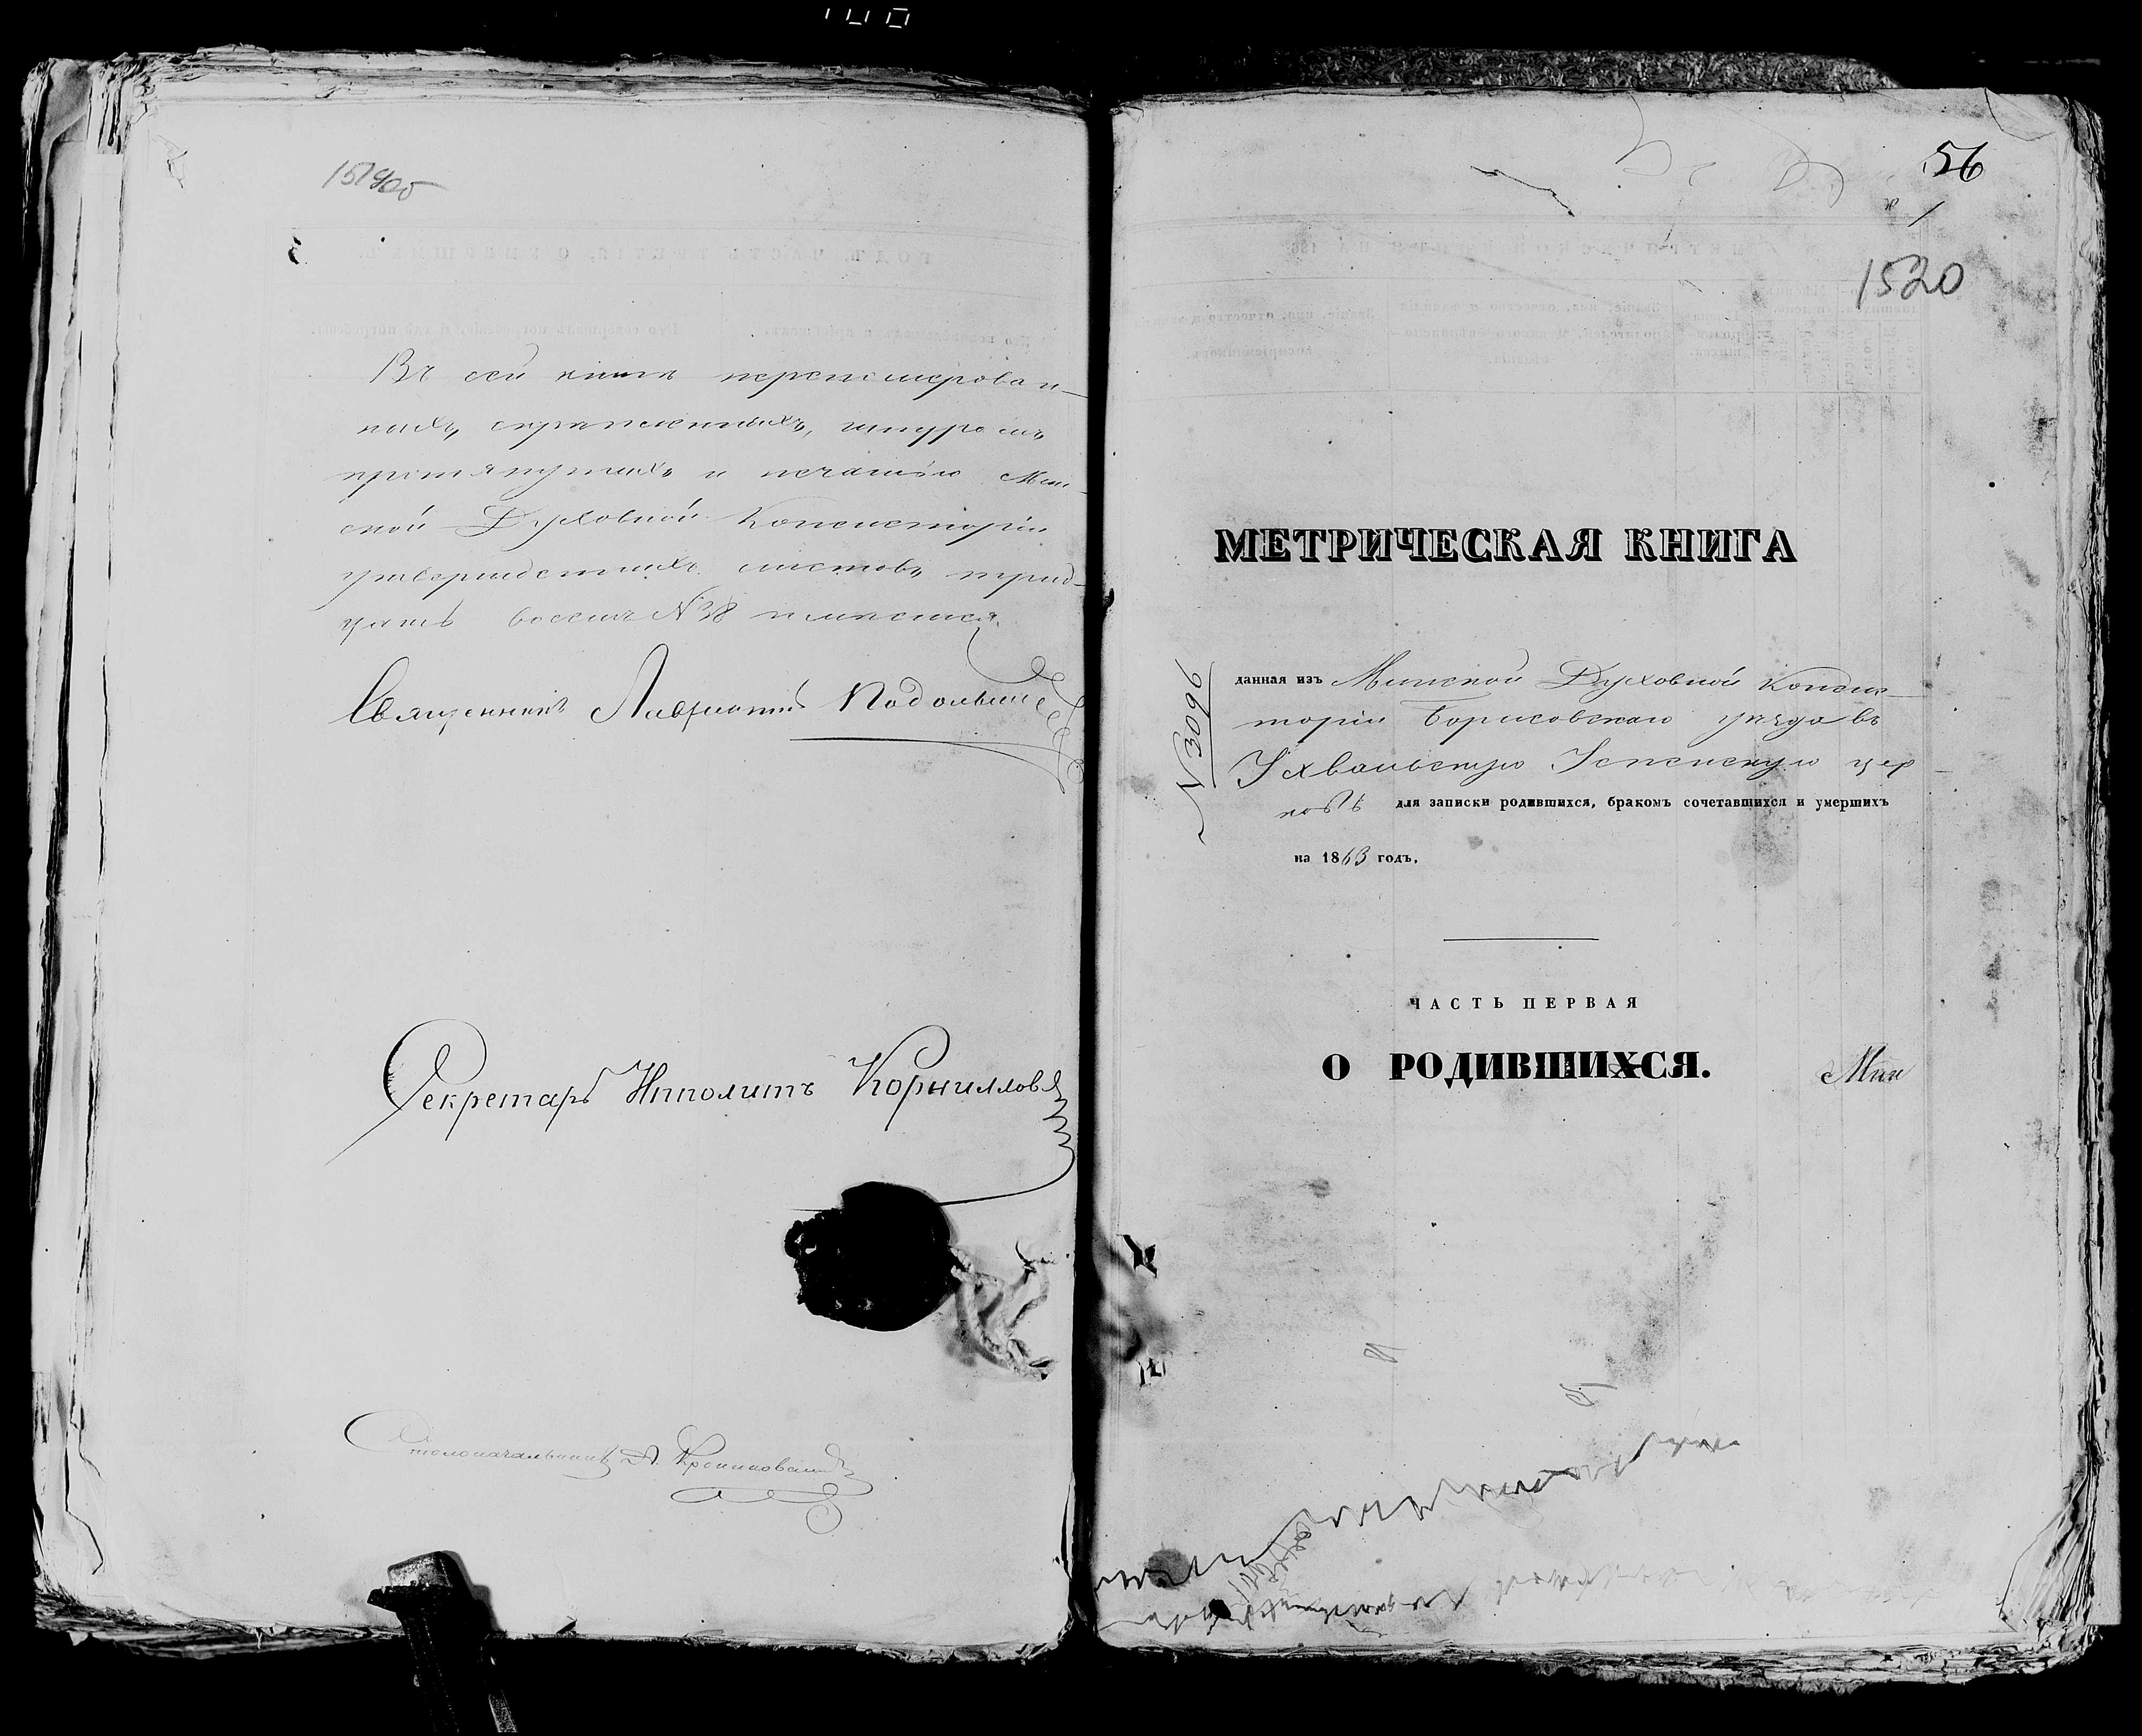 Въ сей книгѣ перенумерован-
ныхъ, скрѣпленныхъ, шнуромъ
протянутыхъ и печатью Мин-
ской Духовной Консисторіи
утвержденныхъ листовъ трид-
цать восемь №38 имѣется.
Священникъ Лаврентій
Секретарь Ипполитъ Корнилловъ
Столоначальникъ
56
1
1520
МЕТРИЧЕСКАЯ КНИГА
№ 3096
данная изъ Минской Духовной Консис-
торіи Борисовскаго уѣзда въ
Ухвальскую Успенскую цер-
ковь для записки родившихся, бракомъ сочетавшихся и умершихъ
на 1863 годъ.
ЧАСТЬ ПЕРВАЯ
О РОДИВШИХСЯ.
Мин